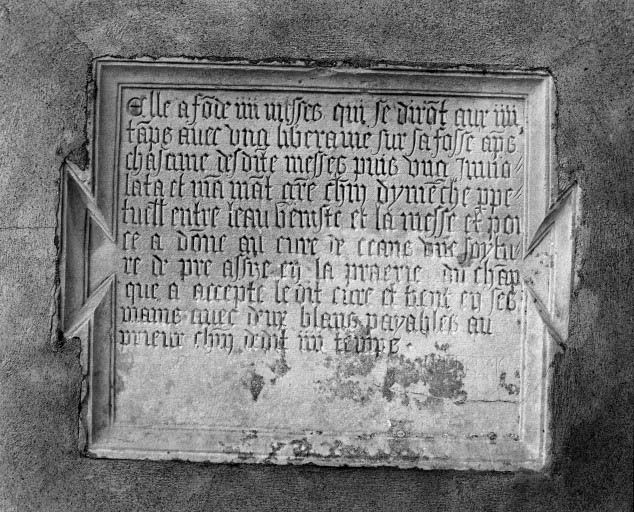 Elle a fōde iiii messes qui se dirōt aux iiii
tāps avec vng liberame sur sa fosse apṣ
chascune desdite messes puis vng
lata et mā māt chūn dymēche ppe
tuell entre leau beniste et la messe et poi
ce a dōne au cure de ceans une
re de pre assize en la praerie du chap
que a accepte le cure et tient en ses
mains avec deux blans payables au
prieur chūn iiii temps.